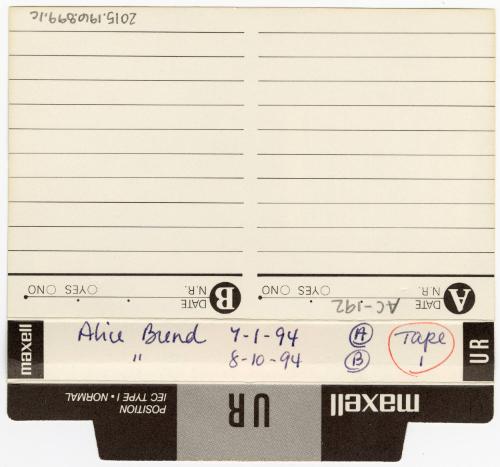 2015.196.899.1c
B DATE
N.R. ○YES ○NO
A DATE AC-192
N.R. ○YES ○NO
maxell Alice Brend 7-1-94 A Tape UR
" 8-10-94 B 1
POSITION
IEC TYPE I • NORMAL
UR
maxell